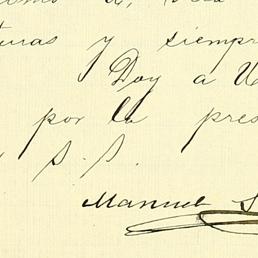 turas y siempre
Doy a U
por la pres
S. S.
Manuel S